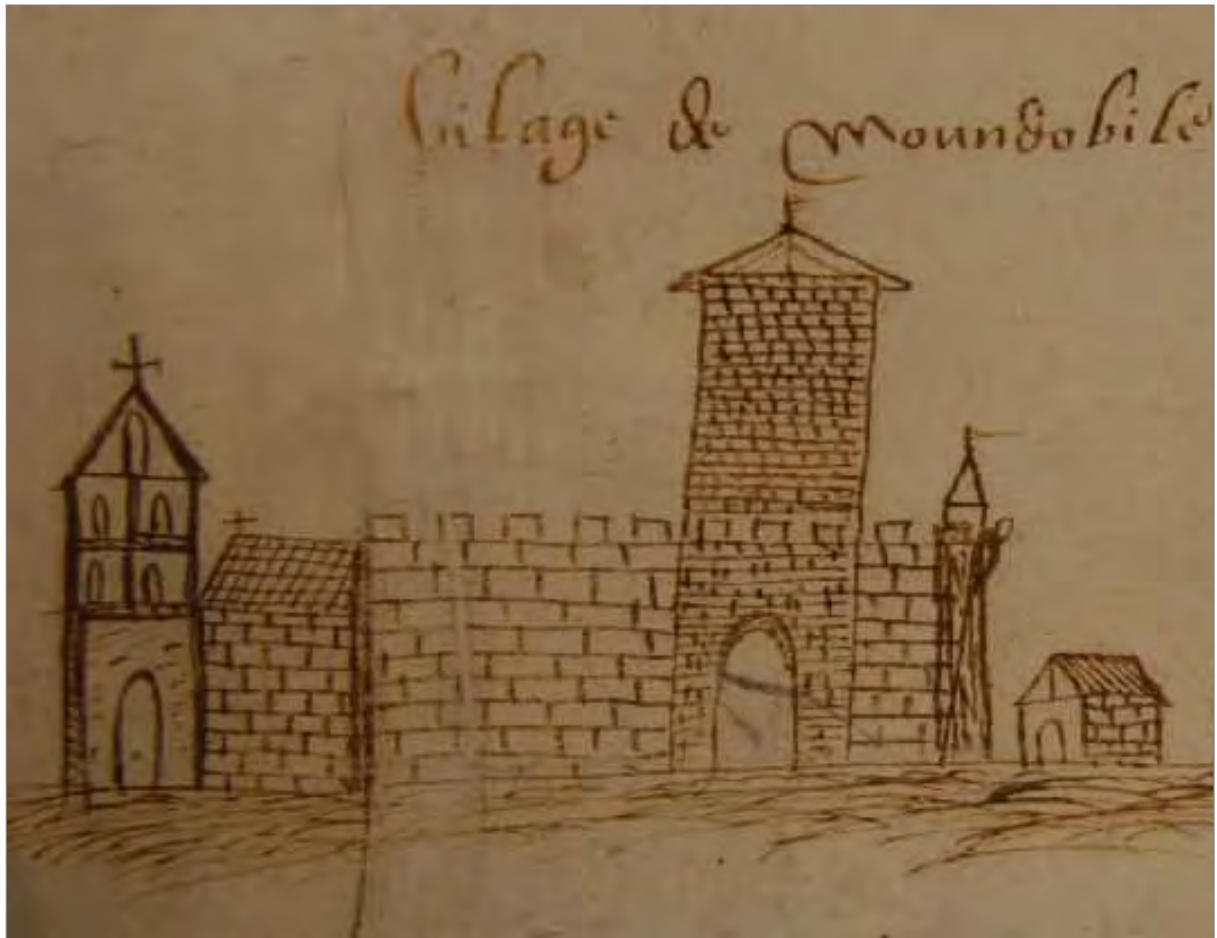 bilage de Moundobile